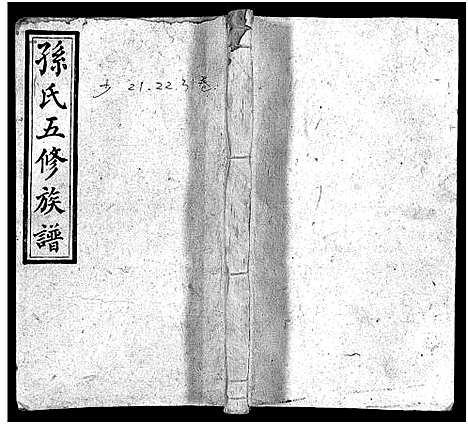 孫氏五修族譜
少 21.22.31卷.